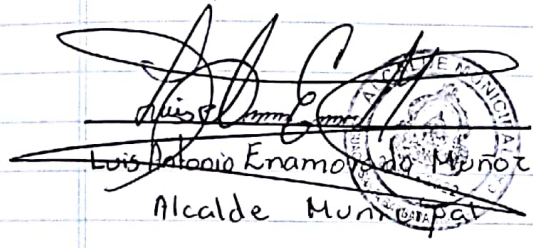 Luis Antonio Enamorado Muñoz
Alcalde Municipal
ALCALDE MUNICIPAL